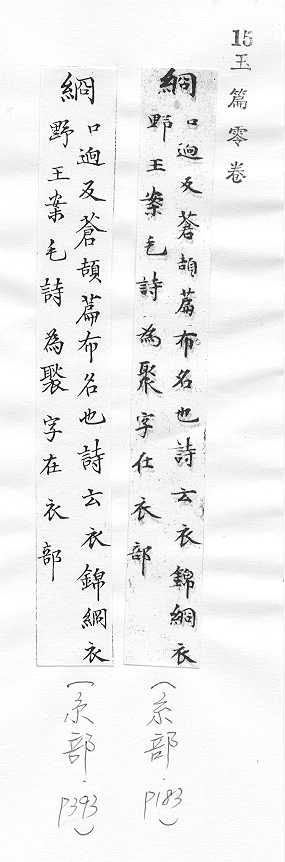 15玉篇零卷
䌹口迥反蒼頡篇布名也詩云衣錦䌹衣
野王案毛詩為褧字在衣部
(糸部.P183)
䌹口迥反蒼頡篇布名也詩云衣錦䌹衣
野王案毛詩為褧字在衣部
(糸部.P393)